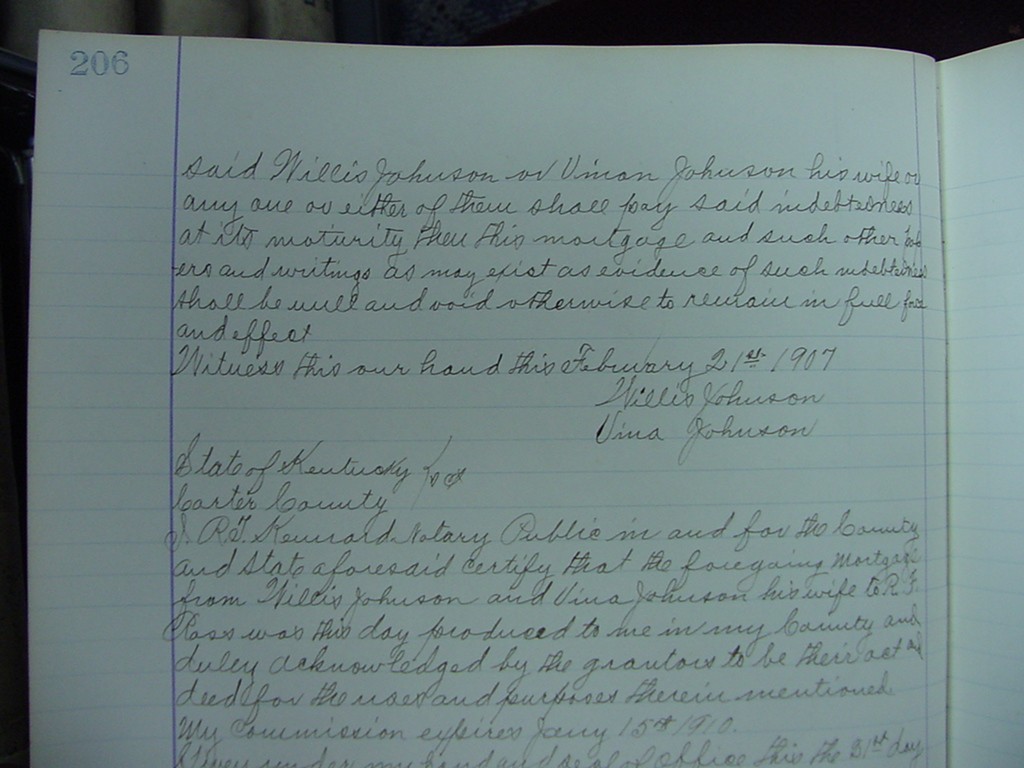 206
said Willis Johnson or Vinan Johnson his wife or
any one or either of them shall pay said indebtedness
at its maturity then this mortgage and such other pap
ers and writings as may exist as evidence of such indebtedness
shall be null and void otherwise to remain in full force
and effect
Witness this our hand this February 21st 1907
Willis Johnson
Vina Johnson
State of Kentucky
Carter County
I R.T. Kennard Notary Public in and for the County
and State aforesaid certify that the foregoing Mortgage
from Willis Johnson and Vina Johnson his wife to R. F.
Ross was this day produced to me in my County and
duley acknowledged by the grantors to be their act and
deed for the uses and purposes therein mentioned
My Commission expires Jany 15th 1910.
Given under my hand and seal of office this the 21st day